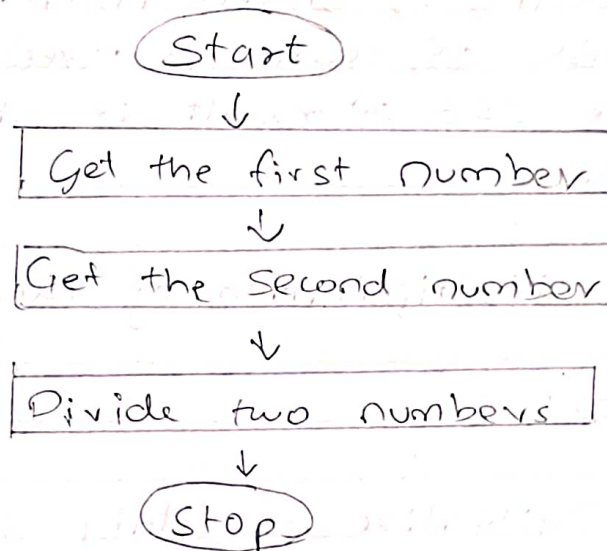 Start
Get the first number
Get the second number
Divide two numbers
Stop